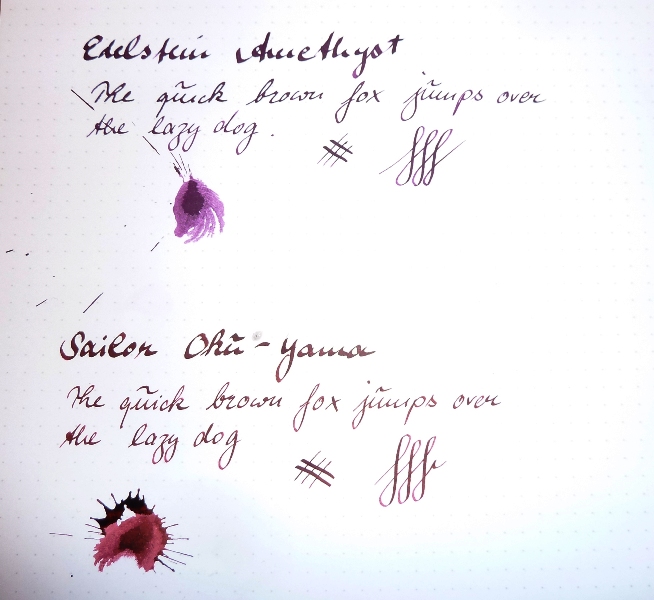 Edelstein Amethyst
The quick brown fox jumps over
the lazy dog.
Sailor Oku-yama
The quick brown fox jumps over
the lazy dog